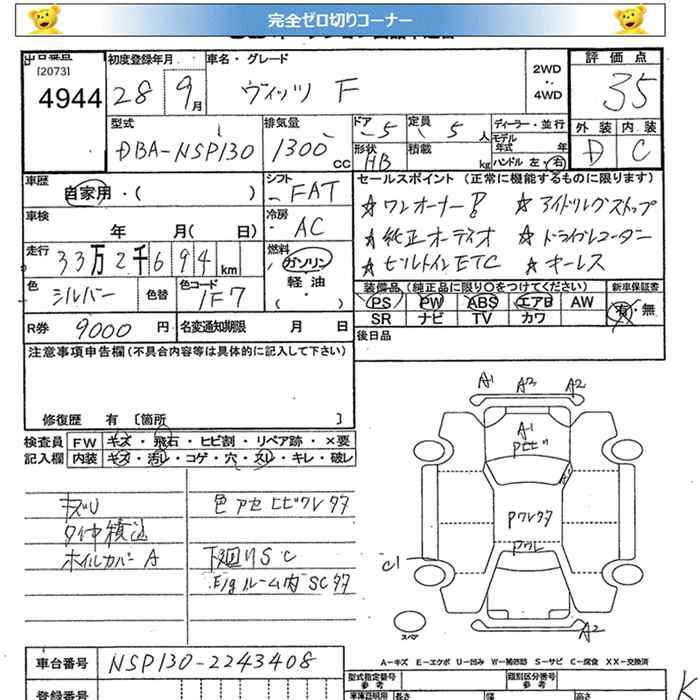 完全ゼロ切りコーナー
[2073]
4944
初度登録年月
28 9月
車名・グレード
ヴィッツ F
2WD
4WD
評価点
3.5
外装 内装
D C
型式
DBA-NSP130
排気量
1300 CC
ドア 5
定員 5 人
形状 HB
積載 kg
ディーラー・並行
モデル年式 年
ハンドル 左・右
車歴
自家用・( )
シフト
FAT
車検
年 月( 日)
冷房
AC
走行
33万2千694km
燃料
ガソリン
軽油
( ・ )
色 シルバー
色替
色コード 1F7
R券 9000円
名変通知期限 月 日
セールスポイント (正常に機能するものに限ります)
☆ワンオーナー! ☆アイドリングストップ
☆純正オーディオ ☆ドライブレコーダー
☆ビルトインETC ☆キーレス
装備品(純正品に限り○をつけてください)
新車保証書
PS PW ABS エアB AW
有・無
SR ナビ TV カワ
後日品
注意事項申告欄(不具合内容等は具体的に記入して下さい)
修復歴 有 〔箇所 〕
検査員記入欄
FW キズ・飛石・ヒビ割・リペア跡・×要
内装 キズ・汚レ・コゲ・穴・スレ・キレ・破レ
キズU
タイヤ積込
ホイルカバーA
色アセヒビワレタタ
下廻りSC
E/gルーム内SCタタ
A1 A3 A2
A1
Pヒビ
Pワレタタ
Pワレ
C1
A2
スペア
A-キズ E-エクボ U-凹み W-補修跡 S-サビ C-腐食 XX-交換済
車台番号 NSP130-2243408
型式指定番号
参考
類別区分番号
参考
登録番号
車庫証明用
長さ
幅
高さ